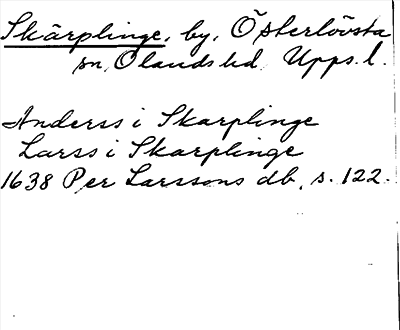 Skärplinge, by, Österlövsta
sn, Olands hd. Upps. l.
Anders i Skarplinge
Larss i Skarplinge
1638 Per Larssons db, s. 122.